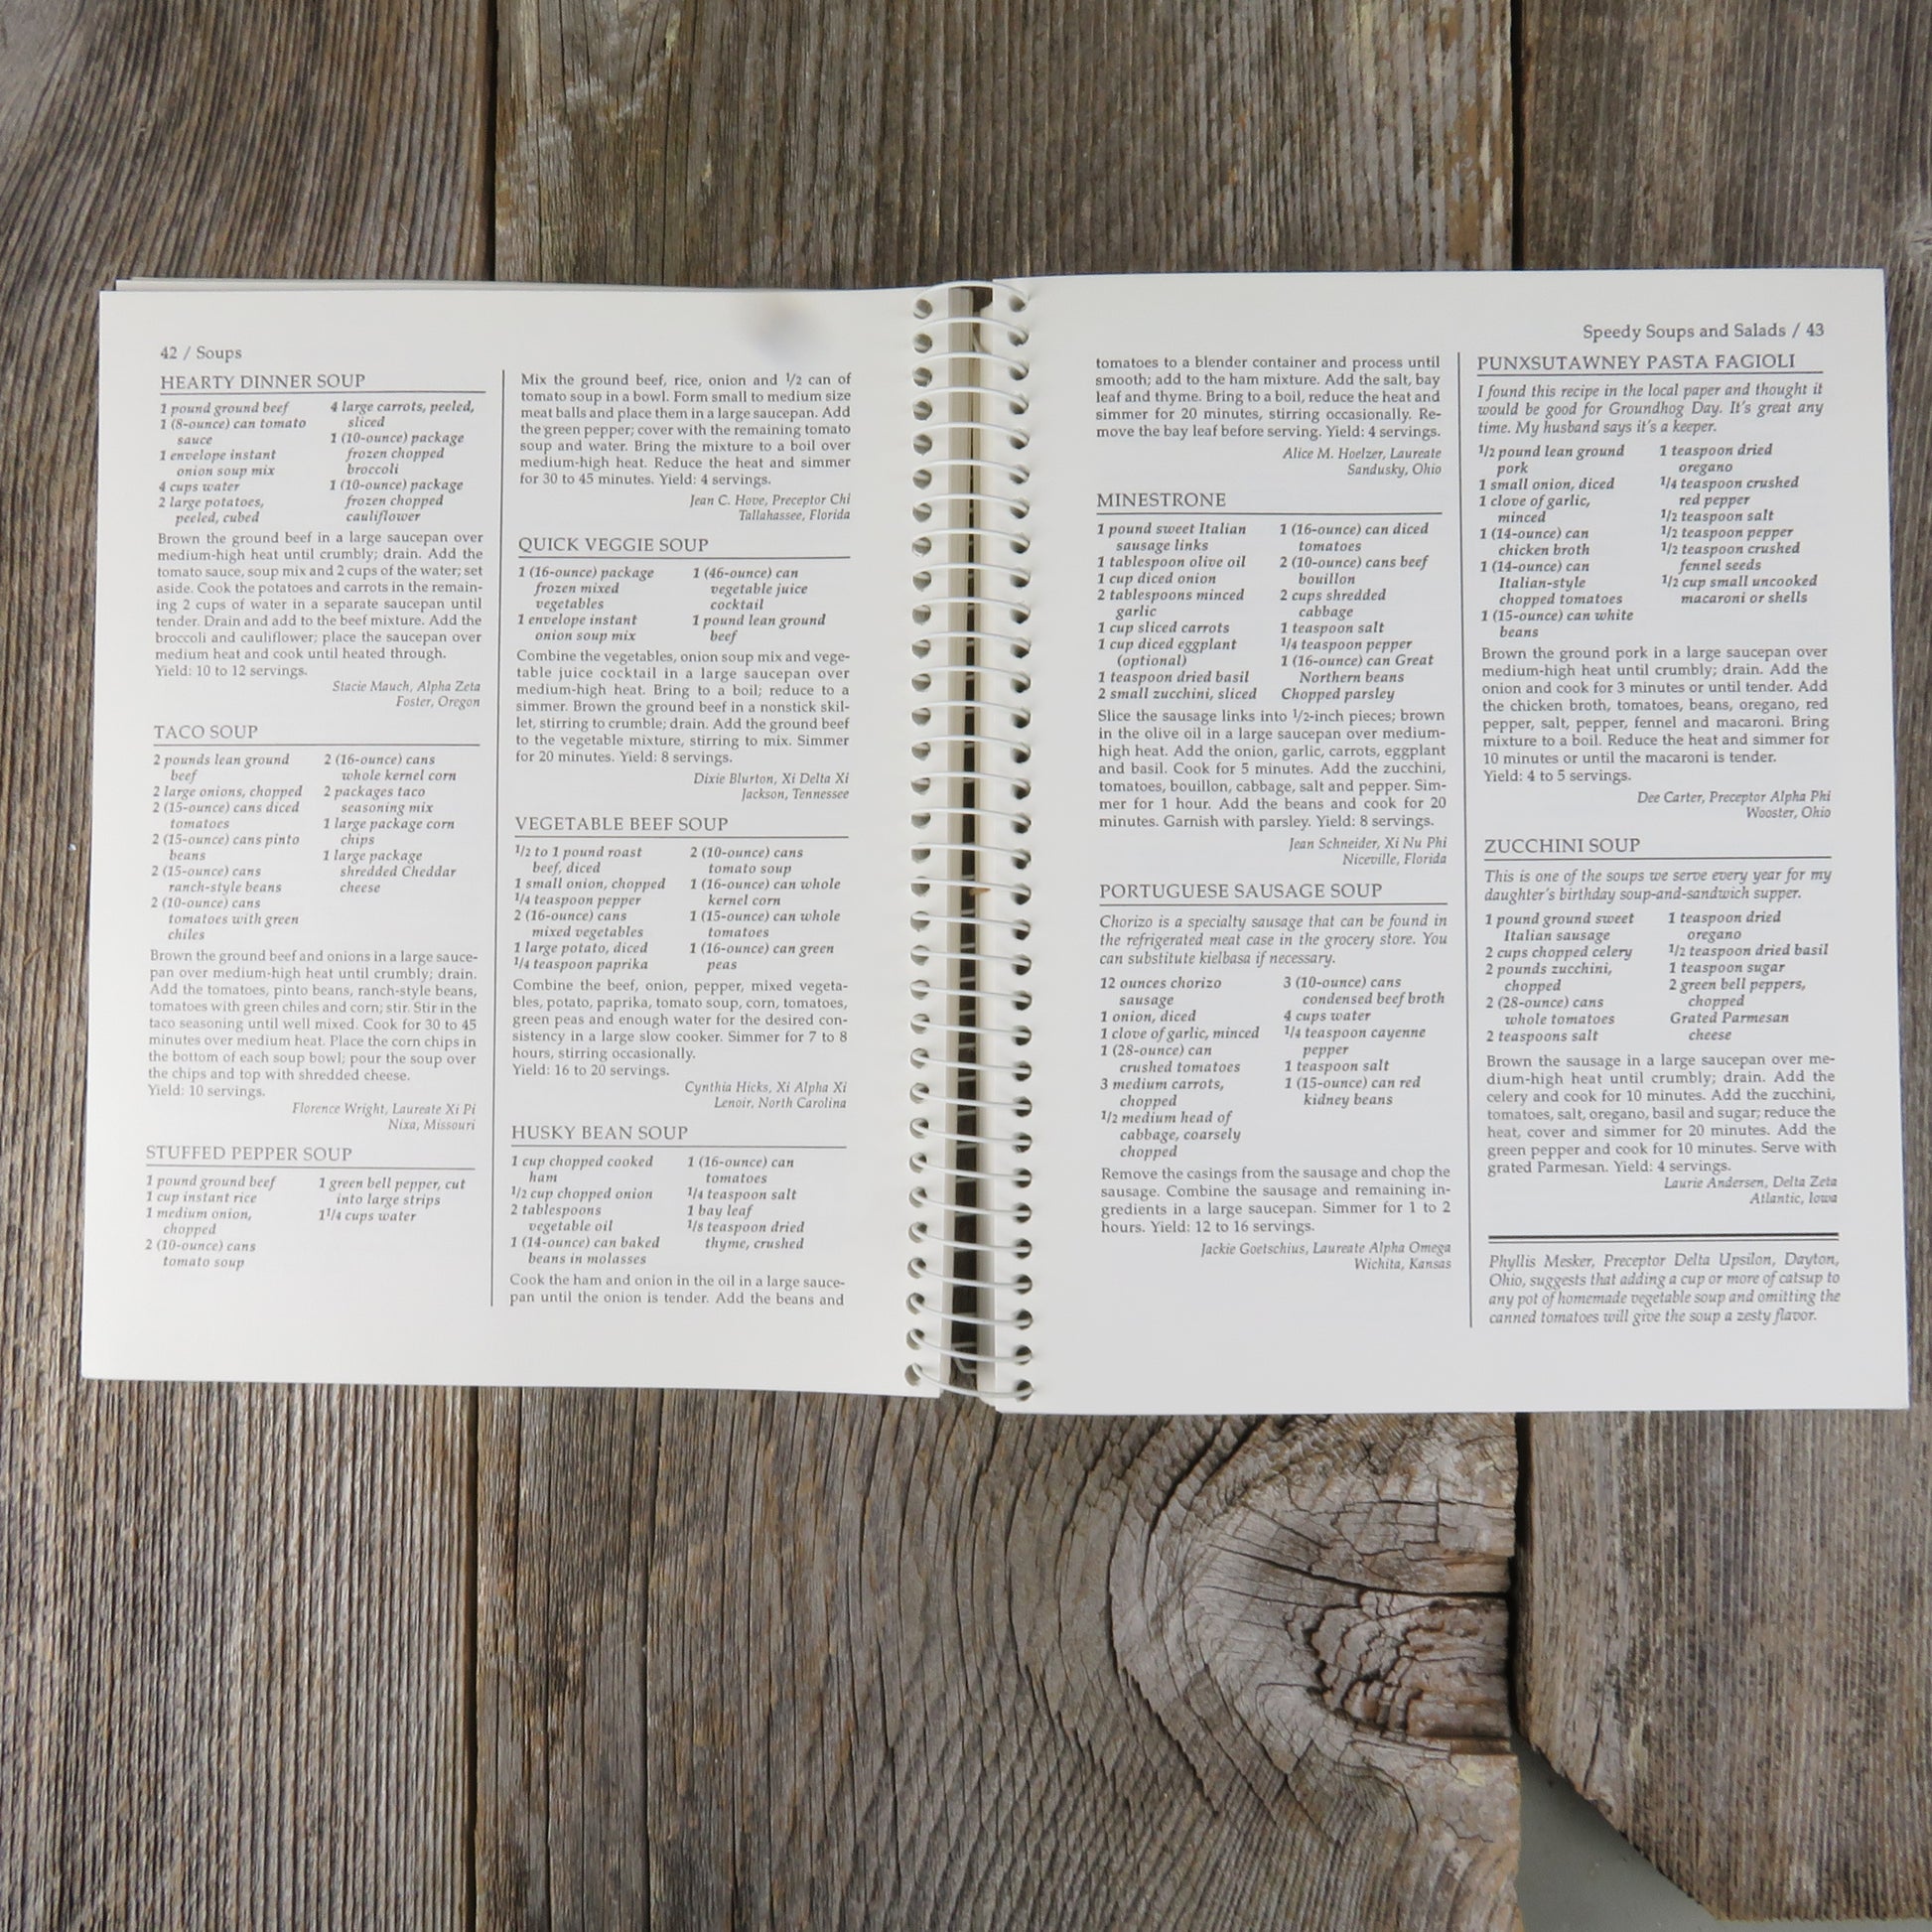 42 / Soups
HEARTY DINNER SOUP
1 pound ground beef
1 (8-ounce) can tomato
sauce
1 envelope instant
onion soup mix
4 cups water
2 large potatoes,
peeled, cubed
4 large carrots, peeled,
sliced
1 (10-ounce) package
frozen chopped
broccoli
1 (10-ounce) package
frozen chopped
cauliflower
Brown the ground beef in a large saucepan over
medium-high heat until crumbly; drain. Add the
tomato sauce, soup mix and 2 cups of the water; set
aside. Cook the potatoes and carrots in the remain-
ing 2 cups of water in a separate saucepan until
tender. Drain and add to the beef mixture. Add the
broccoli and cauliflower; place the saucepan over
medium heat and cook until heated through.
Yield: 10 to 12 servings.
Stacie Mauch, Alpha Zeta
Foster, Oregon
TACO SOUP
2 pounds lean ground
beef
2 large onions, chopped
2 (15-ounce) cans diced
tomatoes
2 (15-ounce) cans pinto
beans
2 (15-ounce) cans
ranch-style beans
2 (10-ounce) cans
tomatoes with green
chiles
2 (16-ounce) cans
whole kernel corn
2 packages taco
seasoning mix
1 large package corn
chips
1 large package
shredded Cheddar
cheese
Brown the ground beef and onions in a large sauce-
pan over medium-high heat until crumbly; drain.
Add the tomatoes, pinto beans, ranch-style beans,
tomatoes with green chiles and corn; stir. Stir in the
taco seasoning until well mixed. Cook for 30 to 45
minutes over medium heat. Place the corn chips in
the bottom of each soup bowl; pour the soup over
the chips and top with shredded cheese.
Yield: 10 servings.
Florence Wright, Laureate Xi Pi
Nixa, Missouri
STUFFED PEPPER SOUP
1 pound ground beef
1 cup instant rice
1 medium onion,
chopped
2 (10-ounce) cans
tomato soup
1 green bell pepper, cut
into large strips
1 1/4 cups water
Mix the ground beef, rice, onion and 1/2 can of
tomato soup in a bowl. Form small to medium size
meat balls and place them in a large saucepan. Add
the green pepper; cover with the remaining tomato
soup and water. Bring the mixture to a boil over
medium-high heat. Reduce the heat and simmer
for 30 to 45 minutes. Yield: 4 servings.
Jean C. Hove, Preceptor Chi
Tallahassee, Florida
QUICK VEGGIE SOUP
1 (16-ounce) package
frozen mixed
vegetables
1 envelope instant
onion soup mix
1 (46-ounce) can
vegetable juice
cocktail
1 pound lean ground
beef
Combine the vegetables, onion soup mix and vege-
table juice cocktail in a large saucepan over
medium-high heat. Bring to a boil; reduce to a
simmer. Brown the ground beef in a nonstick skil-
let, stirring to crumble; drain. Add the ground beef
to the vegetable mixture, stirring to mix. Simmer
for 20 minutes. Yield: 8 servings.
Dixie Blurton, Xi Delta Xi
Jackson, Tennessee
VEGETABLE BEEF SOUP
1/2 to 1 pound roast
beef, diced
1 small onion, chopped
1/4 teaspoon pepper
2 (16-ounce) cans
mixed vegetables
1 large potato, diced
1/4 teaspoon paprika
2 (10-ounce) cans
tomato soup
1 (16-ounce) can whole
kernel corn
1 (15-ounce) can whole
tomatoes
1 (16-ounce) can green
peas
Combine the beef, onion, pepper, mixed vegeta-
bles, potato, paprika, tomato soup, corn, tomatoes,
green peas and enough water for the desired con-
sistency in a large slow cooker. Simmer for 7 to 8
hours, stirring occasionally.
Yield: 16 to 20 servings.
Cynthia Hicks, Xi Alpha Xi
Lenoir, North Carolina
HUSKY BEAN SOUP
1 cup chopped cooked
ham
1/2 cup chopped onion
2 tablespoons
vegetable oil
1 (14-ounce) can baked
beans in molasses
1 (16-ounce) can
tomatoes
1/4 teaspoon salt
1 bay leaf
1/8 teaspoon dried
thyme, crushed
Cook the ham and onion in the oil in a large sauce-
pan until the onion is tender. Add the beans and
Speedy Soups and Salads / 43
tomatoes to a blender container and process until
smooth; add to the ham mixture. Add the salt, bay
leaf and thyme. Bring to a boil, reduce the heat and
simmer for 20 minutes, stirring occasionally. Re-
move the bay leaf before serving. Yield: 4 servings.
Alice M. Hoelzer, Laureate
Sandusky, Ohio
MINESTRONE
1 pound sweet Italian
sausage links
1 tablespoon olive oil
1 cup diced onion
2 tablespoons minced
garlic
1 cup sliced carrots
1 cup diced eggplant
(optional)
1 teaspoon dried basil
2 small zucchini, sliced
1 (16-ounce) can diced
tomatoes
2 (10-ounce) cans beef
bouillon
2 cups shredded
cabbage
1 teaspoon salt
1/4 teaspoon pepper
1 (16-ounce) can Great
Northern beans
Chopped parsley
Slice the sausage links into 1/2-inch pieces; brown
in the olive oil in a large saucepan over medium-
high heat. Add the onion, garlic, carrots, eggplant
and basil. Cook for 5 minutes. Add the zucchini,
tomatoes, bouillon, cabbage, salt and pepper. Sim-
mer for 1 hour. Add the beans and cook for 20
minutes. Garnish with parsley. Yield: 8 servings.
Jean Schneider, Xi Nu Phi
Niceville, Florida
PORTUGUESE SAUSAGE SOUP
Chorizo is a specialty sausage that can be found in
the refrigerated meat case in the grocery store. You
can substitute kielbasa if necessary.
12 ounces chorizo
sausage
1 onion, diced
1 clove of garlic, minced
1 (28-ounce) can
crushed tomatoes
3 medium carrots,
chopped
1/2 medium head of
cabbage, coarsely
chopped
3 (10-ounce) cans
condensed beef broth
4 cups water
1/4 teaspoon cayenne
pepper
1 teaspoon salt
1 (15-ounce) can red
kidney beans
Remove the casings from the sausage and chop the
sausage. Combine the sausage and remaining in-
gredients in a large saucepan. Simmer for 1 to 2
hours. Yield: 12 to 16 servings.
Jackie Goetschius, Laureate Alpha Omega
Wichita, Kansas
PUNXSUTAWNEY PASTA FAGIOLI
I found this recipe in the local paper and thought it
would be good for Groundhog Day. It's great any
time. My husband says it's a keeper.
1/2 pound lean ground
pork
1 small onion, diced
1 clove of garlic,
minced
1 (14-ounce) can
chicken broth
1 (14-ounce) can
Italian-style
chopped tomatoes
1 (15-ounce) can white
beans
1 teaspoon dried
oregano
1/4 teaspoon crushed
red pepper
1/2 teaspoon salt
1/2 teaspoon pepper
1/2 teaspoon crushed
fennel seeds
1/2 cup small uncooked
macaroni or shells
Brown the ground pork in a large saucepan over
medium-high heat until crumbly; drain. Add the
onion and cook for 3 minutes or until tender. Add
the chicken broth, tomatoes, beans, oregano, red
pepper, salt, pepper, fennel and macaroni. Bring
mixture to a boil. Reduce the heat and simmer for
10 minutes or until the macaroni is tender.
Yield: 4 to 5 servings.
Dee Carter, Preceptor Alpha Phi
Wooster, Ohio
ZUCCHINI SOUP
This is one of the soups we serve every year for my
daughter's birthday soup-and-sandwich supper.
1 pound ground sweet
Italian sausage
2 cups chopped celery
2 pounds zucchini,
chopped
2 (28-ounce) cans
whole tomatoes
2 teaspoons salt
1 teaspoon dried
oregano
1/2 teaspoon dried basil
1 teaspoon sugar
2 green bell peppers,
chopped
Grated Parmesan
cheese
Brown the sausage in a large saucepan over me-
dium-high heat until crumbly; drain. Add the
celery and cook for 10 minutes. Add the zucchini,
tomatoes, salt, oregano, basil and sugar; reduce the
heat, cover and simmer for 20 minutes. Add the
green pepper and cook for 10 minutes. Serve with
grated Parmesan. Yield: 4 servings.
Laurie Andersen, Delta Zeta
Atlantic, Iowa
Phyllis Mesker, Preceptor Delta Upsilon, Dayton,
Ohio, suggests that adding a cup or more of catsup to
any pot of homemade vegetable soup and omitting the
canned tomatoes will give the soup a zesty flavor.